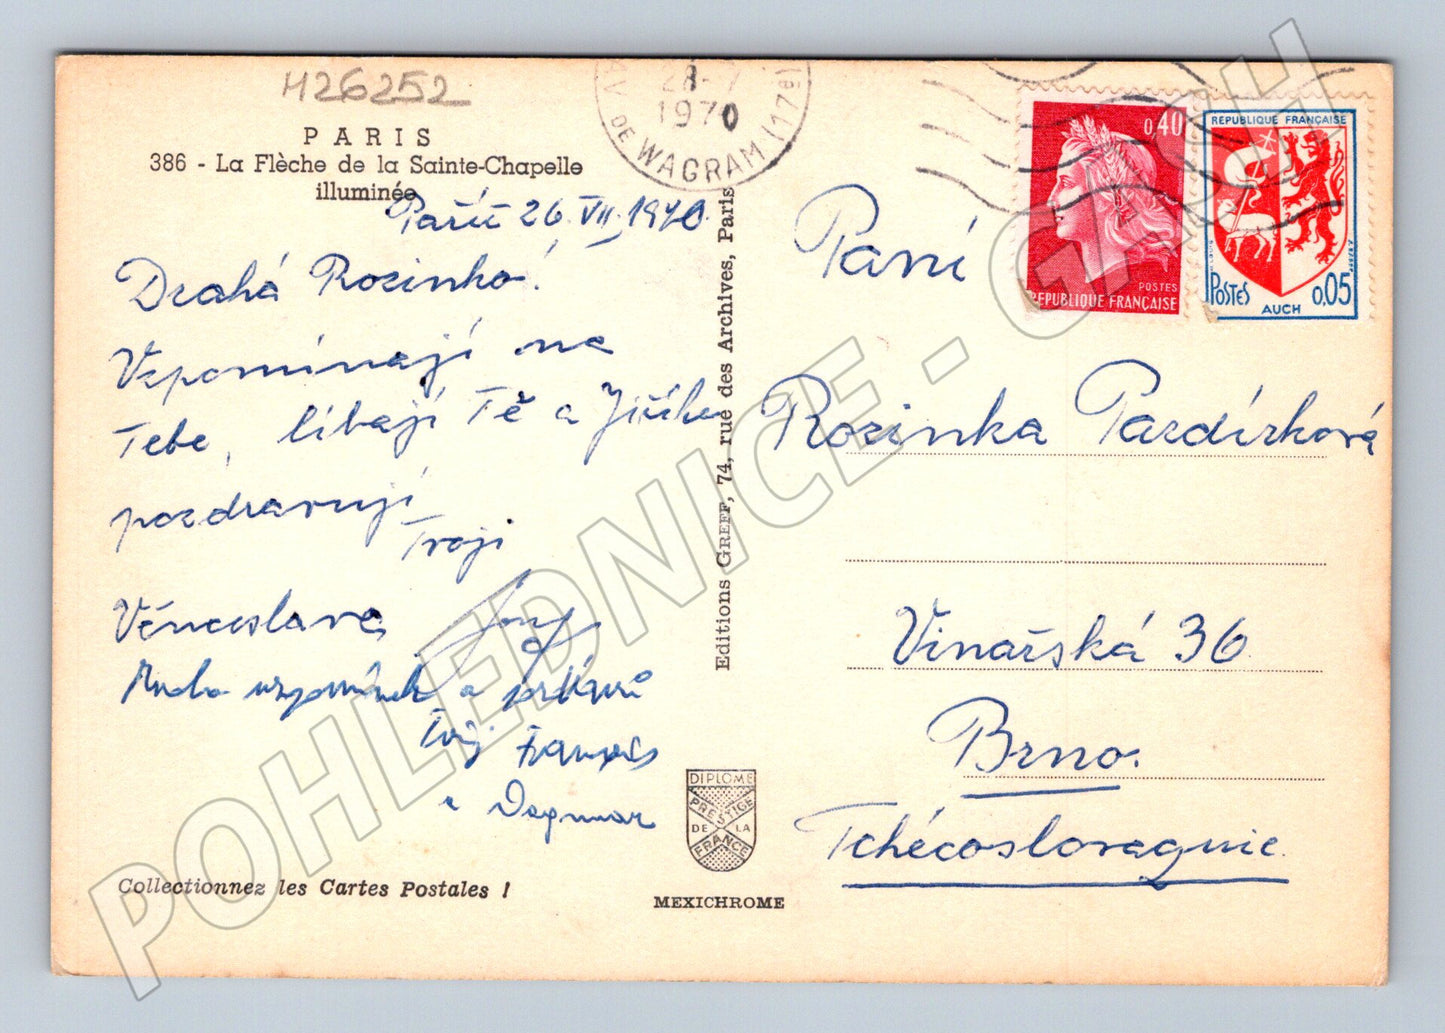 H26252
PARIS
386 - La Flèche de la Sainte-Chapelle
illuminée
Paříž 26. VII. 1970.
Drahá Rozinko!
Vzpomínají na
Tebe, líbají Tě a Jiříka
pozdravují
Tvoji
Věnceslava
Mnoho vzpomínek a
Tvůj François
a Dagmar
Collectionnez les Cartes Postales !
Editions GREFF, 74, rue des Archives, Paris
DIPLOME
PRESTIGE
DE LA
FRANCE
MEXICHROME
28-7
1970
AV. DE WAGRAM (17e)
0,40
POSTES
REPUBLIQUE FRANÇAISE
REPUBLIQUE FRANÇAISE
POSTES 0,05
AUCH
Paní
Rozinka Pardírková
Vinařská 36
Brno.
Tchécoslovaquie.
POHLEDNICE - GASH